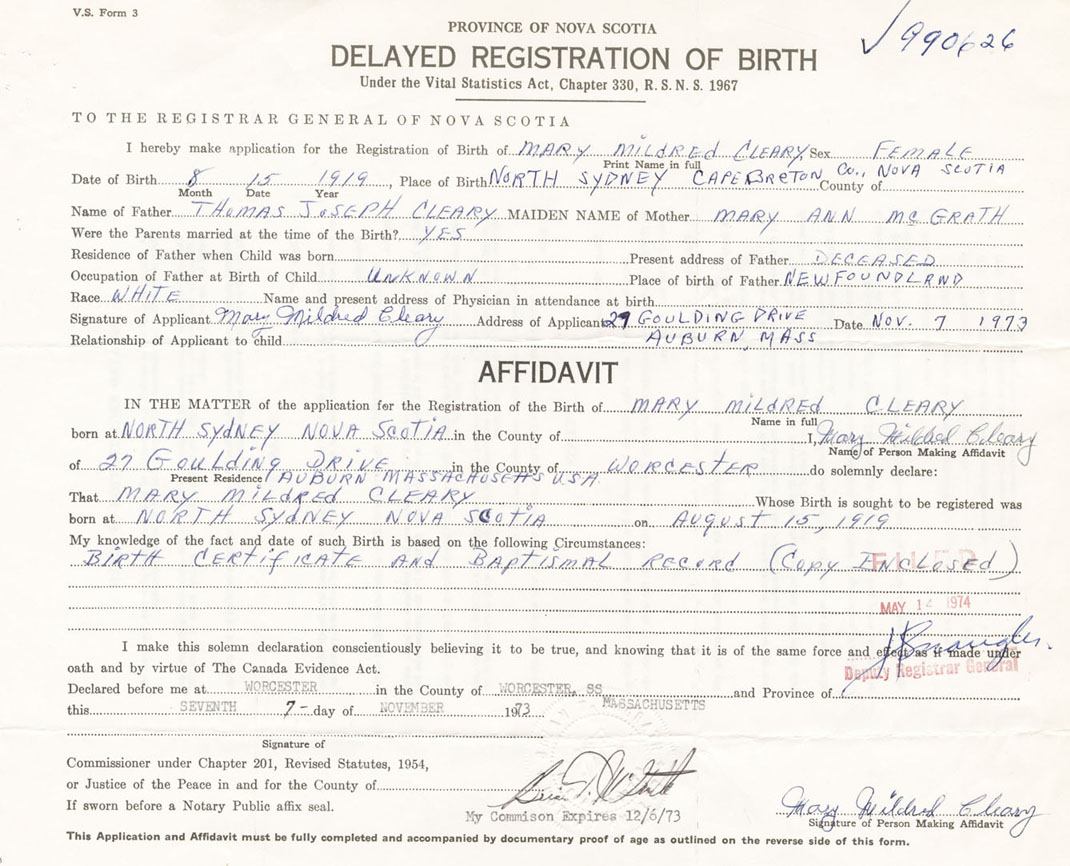 V.S. Form 3
✓990626
PROVINCE OF NOVA SCOTIA
DELAYED REGISTRATION OF BIRTH
Under the Vital Statistics Act, Chapter 330, R.S.N.S. 1967
TO THE REGISTRAR GENERAL OF NOVA SCOTIA
I hereby make application for the Registration of Birth of MARY MILDRED CLEARY Sex FEMALE
Print Name in full
Date of Birth 8 15 1919, Place of Birth NORTH SYDNEY CAPE BRETON Co., NOVA SCOTIA County of
Month Date Year
Name of Father THOMAS JOSEPH CLEARY MAIDEN NAME of Mother MARY ANN McGRATH
Were the Parents married at the time of the Birth? YES
Residence of Father when Child was born Present address of Father DECEASED
Occupation of Father at Birth of Child UNKNOWN Place of birth of Father NEWFOUNDLAND
Race WHITE Name and present address of Physician in attendance at birth
Signature of Applicant Mary Mildred Cleary Address of Applicant 27 GOULDING DRIVE Date NOV. 7 1973
Relationship of Applicant to child AUBURN, MASS
AFFIDAVIT
IN THE MATTER of the application for the Registration of the Birth of MARY MILDRED CLEARY
Name in full
born at NORTH SYDNEY NOVA SCOTIA in the County of I, Mary Mildred Cleary
Name of Person Making Affidavit
of 27 GOULDING DRIVE in the County of WORCESTER do solemnly declare:
Present Residence AUBURN MASSACHUSETTS U.S.A.
That MARY MILDRED CLEARY Whose Birth is sought to be registered was
born at NORTH SYDNEY NOVA SCOTIA on AUGUST 15, 1919
My knowledge of the fact and date of such Birth is based on the following Circumstances:
BIRTH CERTIFICATE AND BAPTISMAL RECORD (COPY ENCLOSED)
FILED
MAY 14 1974
I make this solemn declaration conscientiously believing it to be true, and knowing that it is of the same force and effect as if made under
oath and by virtue of The Canada Evidence Act.
Deputy Registrar General
Declared before me at WORCESTER in the County of WORCESTER, SS and Province of
MASSACHUSETTS
this SEVENTH 7- day of NOVEMBER 1973
Signature of
Commissioner under Chapter 201, Revised Statutes, 1954,
or Justice of the Peace in and for the County of
If sworn before a Notary Public affix seal.
My Commison Expires 12/6/73
Mary Mildred Cleary
Signature of Person Making Affidavit
This Application and Affidavit must be fully completed and accompanied by documentary proof of age as outlined on the reverse side of this form.